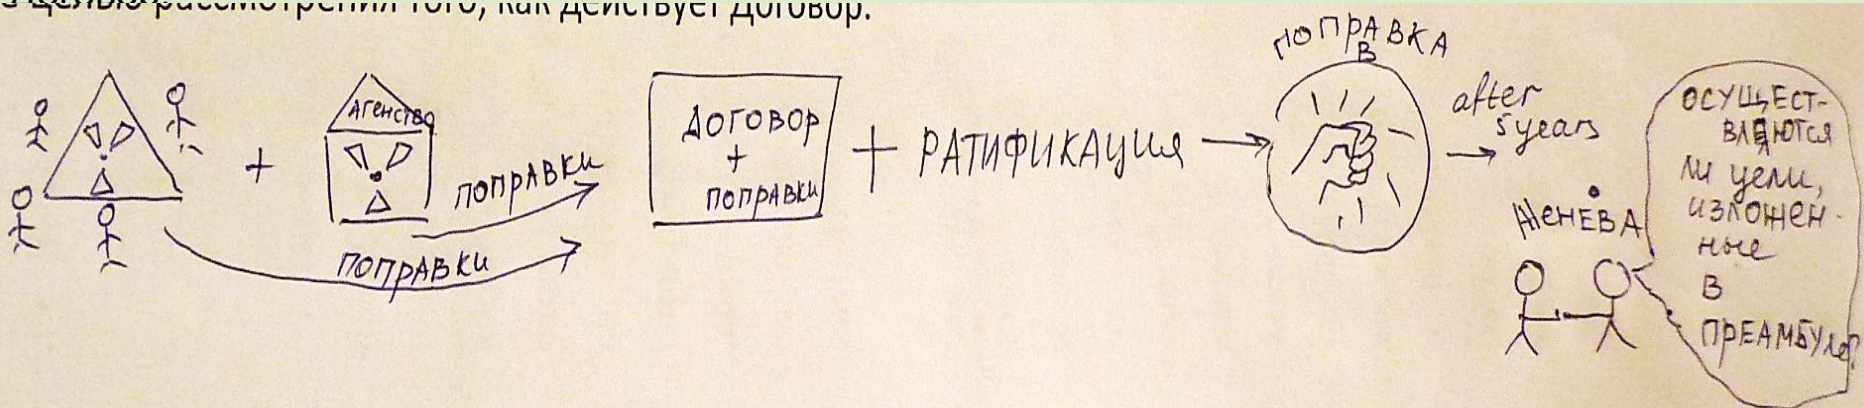 с целью рассмотрения того, как действует договор.
АГЕНСТВО
+
ПОПРАВКИ
ПОПРАВКИ
ДОГОВОР
+
ПОПРАВКИ
+ РАТИФИКАЦИЯ →
ПОПРАВКА
В
after
5 years
ЖЕНЕВА
ОСУЩЕСТ-
ВЛЯЮТСЯ
ЛИ цели,
изложен-
ные
В
ПРЕАМБУЛе?